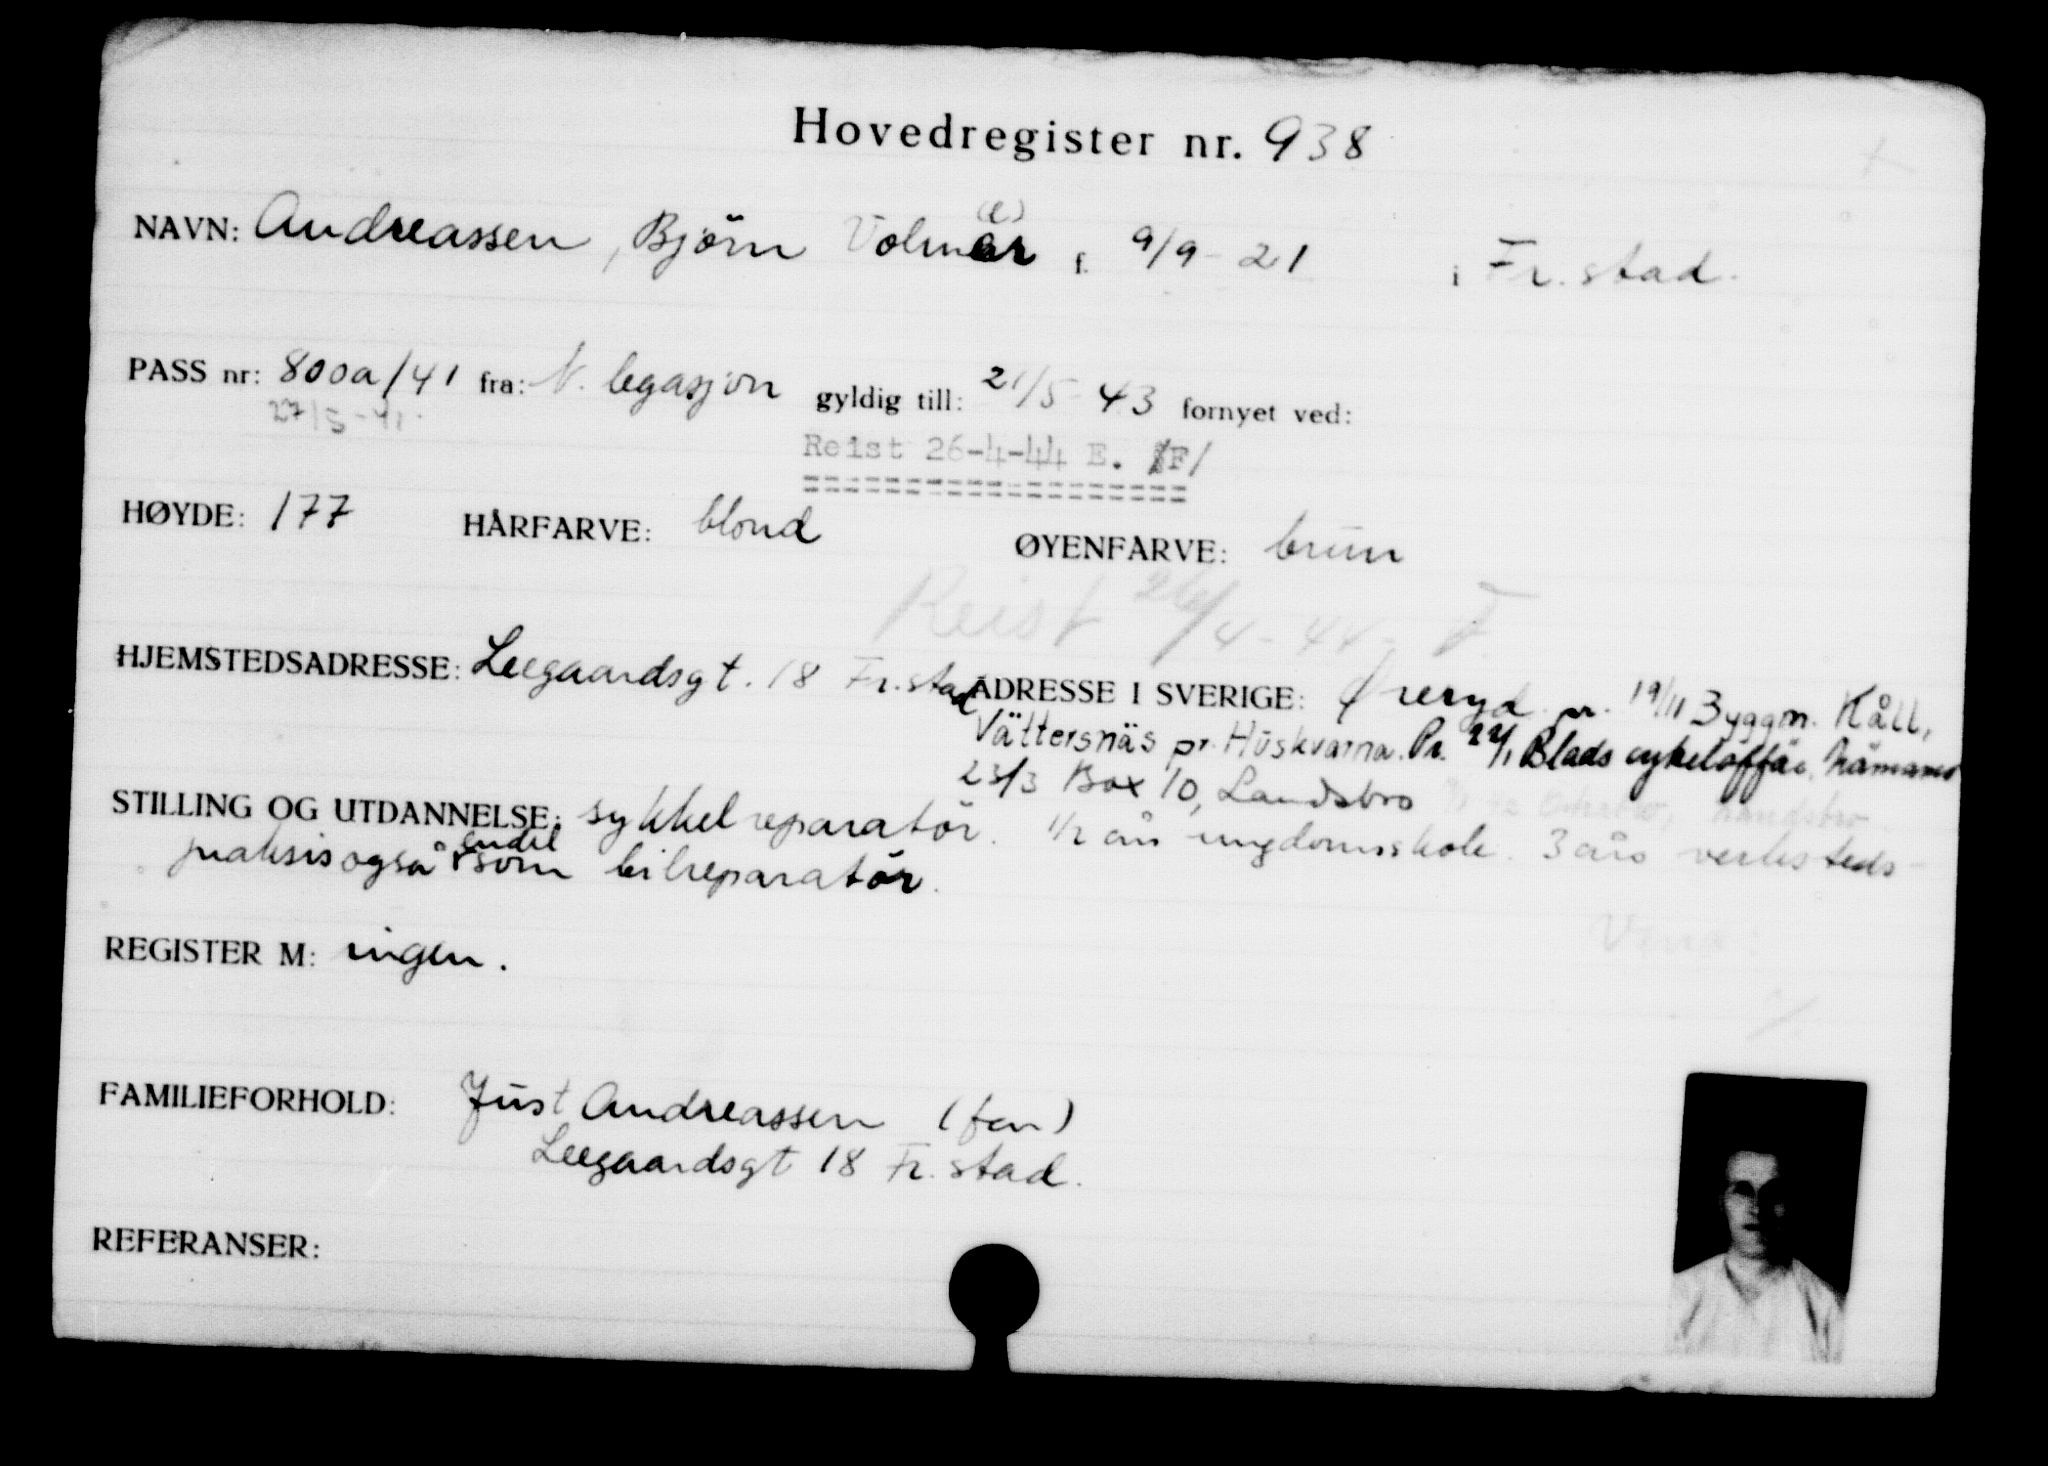 Hovedregister nr. 938
NAVN: Andreassen, Bjørn Volmar (e) f. 9/9-21 i Fr.stad.
PASS nr: 800a/41 fra: N. legasjon gyldig till: 21/5-43 fornyet ved:
27/5-41.
Reist 26-4-44 E. /F/
HØYDE: 177 HÅRFARVE: blond ØYENFARVE: brun
Reist 26/4-44- F
HJEMSTEDSADRESSE: Leegaardsgt. 18 Fr.stad ADRESSE I SVERIGE: Øreryd. pr. 19/11 Byggm. Kåll,
Vättersnäs pr. Huskvarna. Pr. 22/1 Blads cykelaffär,
23/3 Box 10, Landsbro
STILLING OG UTDANNELSE: sykkelreparatör. 1/2 års ungdomsskole. 3 års verksteds-
praksis også endel som bilreparatör.
REGISTER M: ingen.
FAMILIEFORHOLD: Just Andreassen (far)
Leegaardsgt 18 Fr.stad.
REFERANSER: